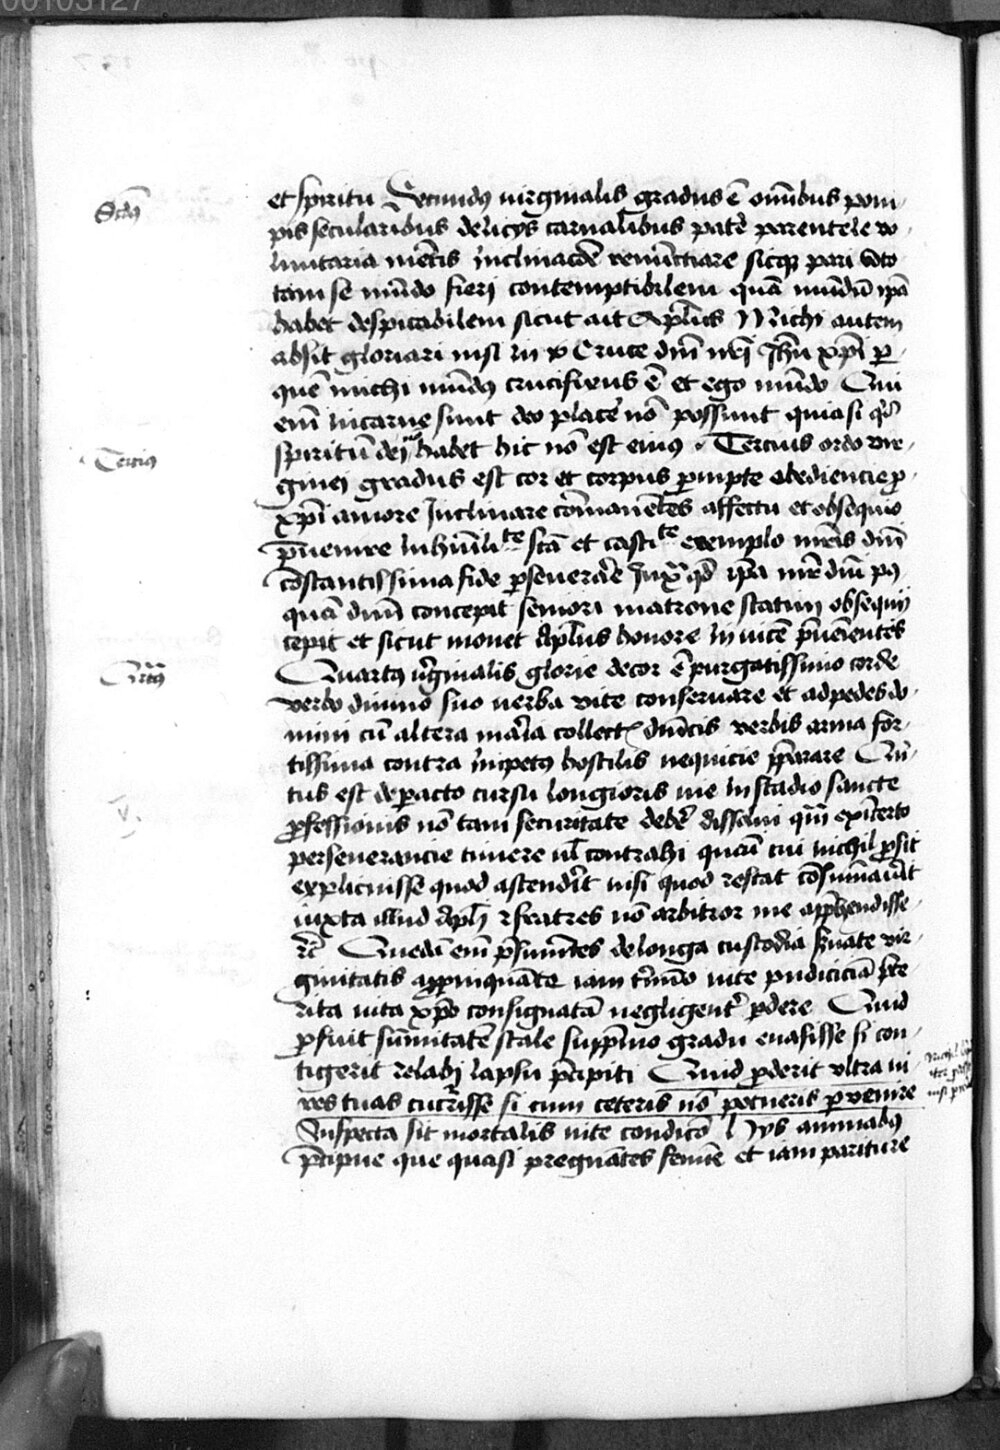 00103127
et spiritu Secundus virginalis gradus ē omībus pom-
Scdus
pis secularibus delicijs carnalibus patr̄e parentele vo-
luntaria mētis inclinacōe renūctiare sicque pari voto
tam se mūdo fieri contemptibilem quā mūdū ipā
habet despicabilem sicut ait Aplūs Michi autem
absit gloriari nisi in Cruce dnī nrī Jhū xpī per
quē michi mūdus crucifixus ē et ego mūdo Qui
enī in carne sunt deo placere nō possunt quia si quis
spiritū dei nō habet hic nō est eius . Tercius ordo vir-
Tercius
ginei gradus est cor et corpus prompte obediencie pro
xpī amore Inclinare cōmanentes affectu et obsequio
prevenire in hūilite scā et castite exemplo matris dnī
cōstantissima fide perseverare Juxta quod ipa mater dnī post
quā dnm̄ concepit seniori matrone statim obsequij
cepit et sicut monet Aplūs honore invicē prevenientes
Quartus virginalis glorie decor ē purgatissimo corde
Qrtus
verbo divino suo verba vite conservare et ad pedes do-
mini cū altera maria collectis dnīcis verbis arma for-
tissima contra impetus hostilis nequicie preparare Quin-
tus est de peracto cursu longioris vie in stadio sancte
V
professionis nō tam securitate debere dissolvi quam expicerto
perseverancie timere vel contrahi quem cui nichil prosit
explicuisse quod ascenderit nisi quod restat cōsumaverit
iuxta illud Apli fratres nō arbitror me apprehendisse
rc Quedam enī presumentes de longa custodia servate vir-
ginitatis appropinquāte iam termino vite pudiciciā prete-
rita vita xpo consignatā negligenter perdere Quid
profuit sūmitatē scale supremo gradu evasisse si con-
tigerit relabi lapsu precipiti Quid proderit ultra vi-
res tuas cucurrisse si cum ceteris nō potueris pervenire
Suspecta sit mortalis vite condicō hijs animabus
precipue que quasi pregnātes femine et iam pariture